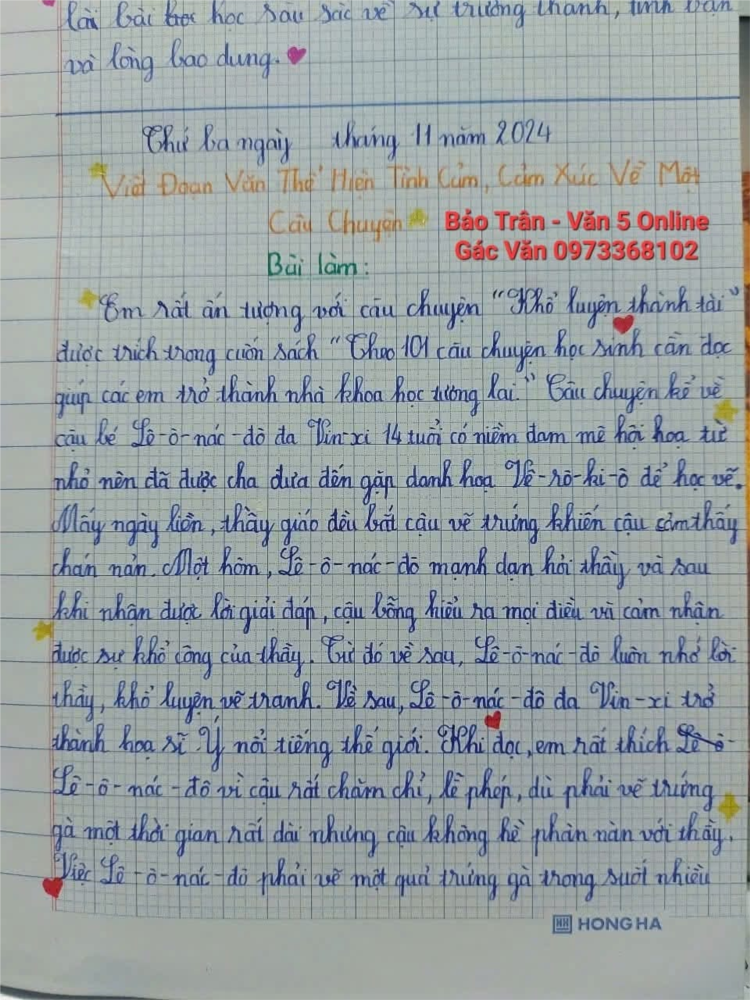 lại bài học học sâu sắc về sự trưởng thành, tình bạn
và lòng bao dung.
Thứ ba ngày tháng 11 năm 2024
Viết Đoạn Văn Thể Hiện Tình Cảm, Cảm Xúc Về Một
Câu Chuyện
Bảo Trân - Văn 5 Online
Gác Văn 0973368102
Bài làm:
Em rất ấn tượng với câu chuyện "Khổ luyện thành tài"
được trích trong cuốn sách "Theo 101 câu chuyện học sinh cần đọc
giúp các em trở thành nhà khoa học tương lai." Câu chuyện kể về
cậu bé Lê-ô-nác-đô đa Vin-xi 14 tuổi có niềm đam mê hội hoạ từ
nhỏ nên đã được cha đưa đến gặp danh hoạ Vê-rô-ki-ô để học vẽ.
Mấy ngày liền, thầy giáo đều bắt cậu vẽ trứng khiến cậu cảm thấy
chán nản. Một hôm, Lê-ô-nác-đô mạnh dạn hỏi thầy và sau
khi nhận được lời giải đáp, cậu bỗng hiểu ra mọi điều và cảm nhận
được sự khổ công của thầy. Từ đó về sau, Lê-ô-nác-đô luôn nhớ lời
thầy, khổ luyện vẽ tranh. Về sau, Lê-ô-nác-đô đa Vin-xi trở
thành hoạ sĩ Ý nổi tiếng thế giới. Khi đọc, em rất thích Lê-ô-
Lê-ô-nác-đô vì cậu rất chăm chỉ, lễ phép, dù phải vẽ trứng
gà một thời gian rất dài nhưng cậu không hề phàn nàn với thầy.
Việc Lê-ô-nác-đô phải vẽ một quả trứng gà trong suốt nhiều
HH HONG HA